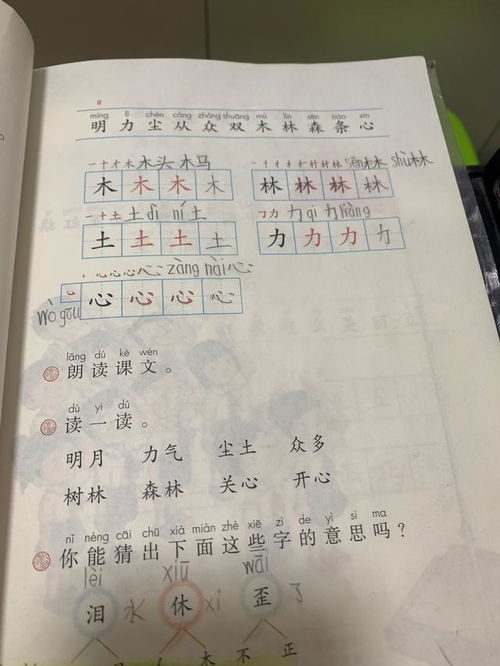 míng lì chén cóng zhòng shuāng mù lín sēn tiáo xīn
明 力 尘 从 众 双 木 林 森 条 心
一 十 才 木 木头 木马
木 木 木 木
sēn林 shù林
林 林 林 林
一 十 土 土dì ní土
土 土 土 土
フ 力 力qi 力liàng
力 力 力 力
心 心 zàng nài心
心 心 心 心
wò gōu
lǎng dú kè wén
朗 读 课 文 。
dú yi dú
读 一 读 。
明月 力气 尘土 众多
树林 森林 关心 开心
nǐ néng cāi chū xià miàn zhè xiē zì de yì si ma
你 能 猜 出 下 面 这 些 字 的 意 思 吗 ？
lèi xiū wāi
泪 水 休 xi 歪 了
木 不 正